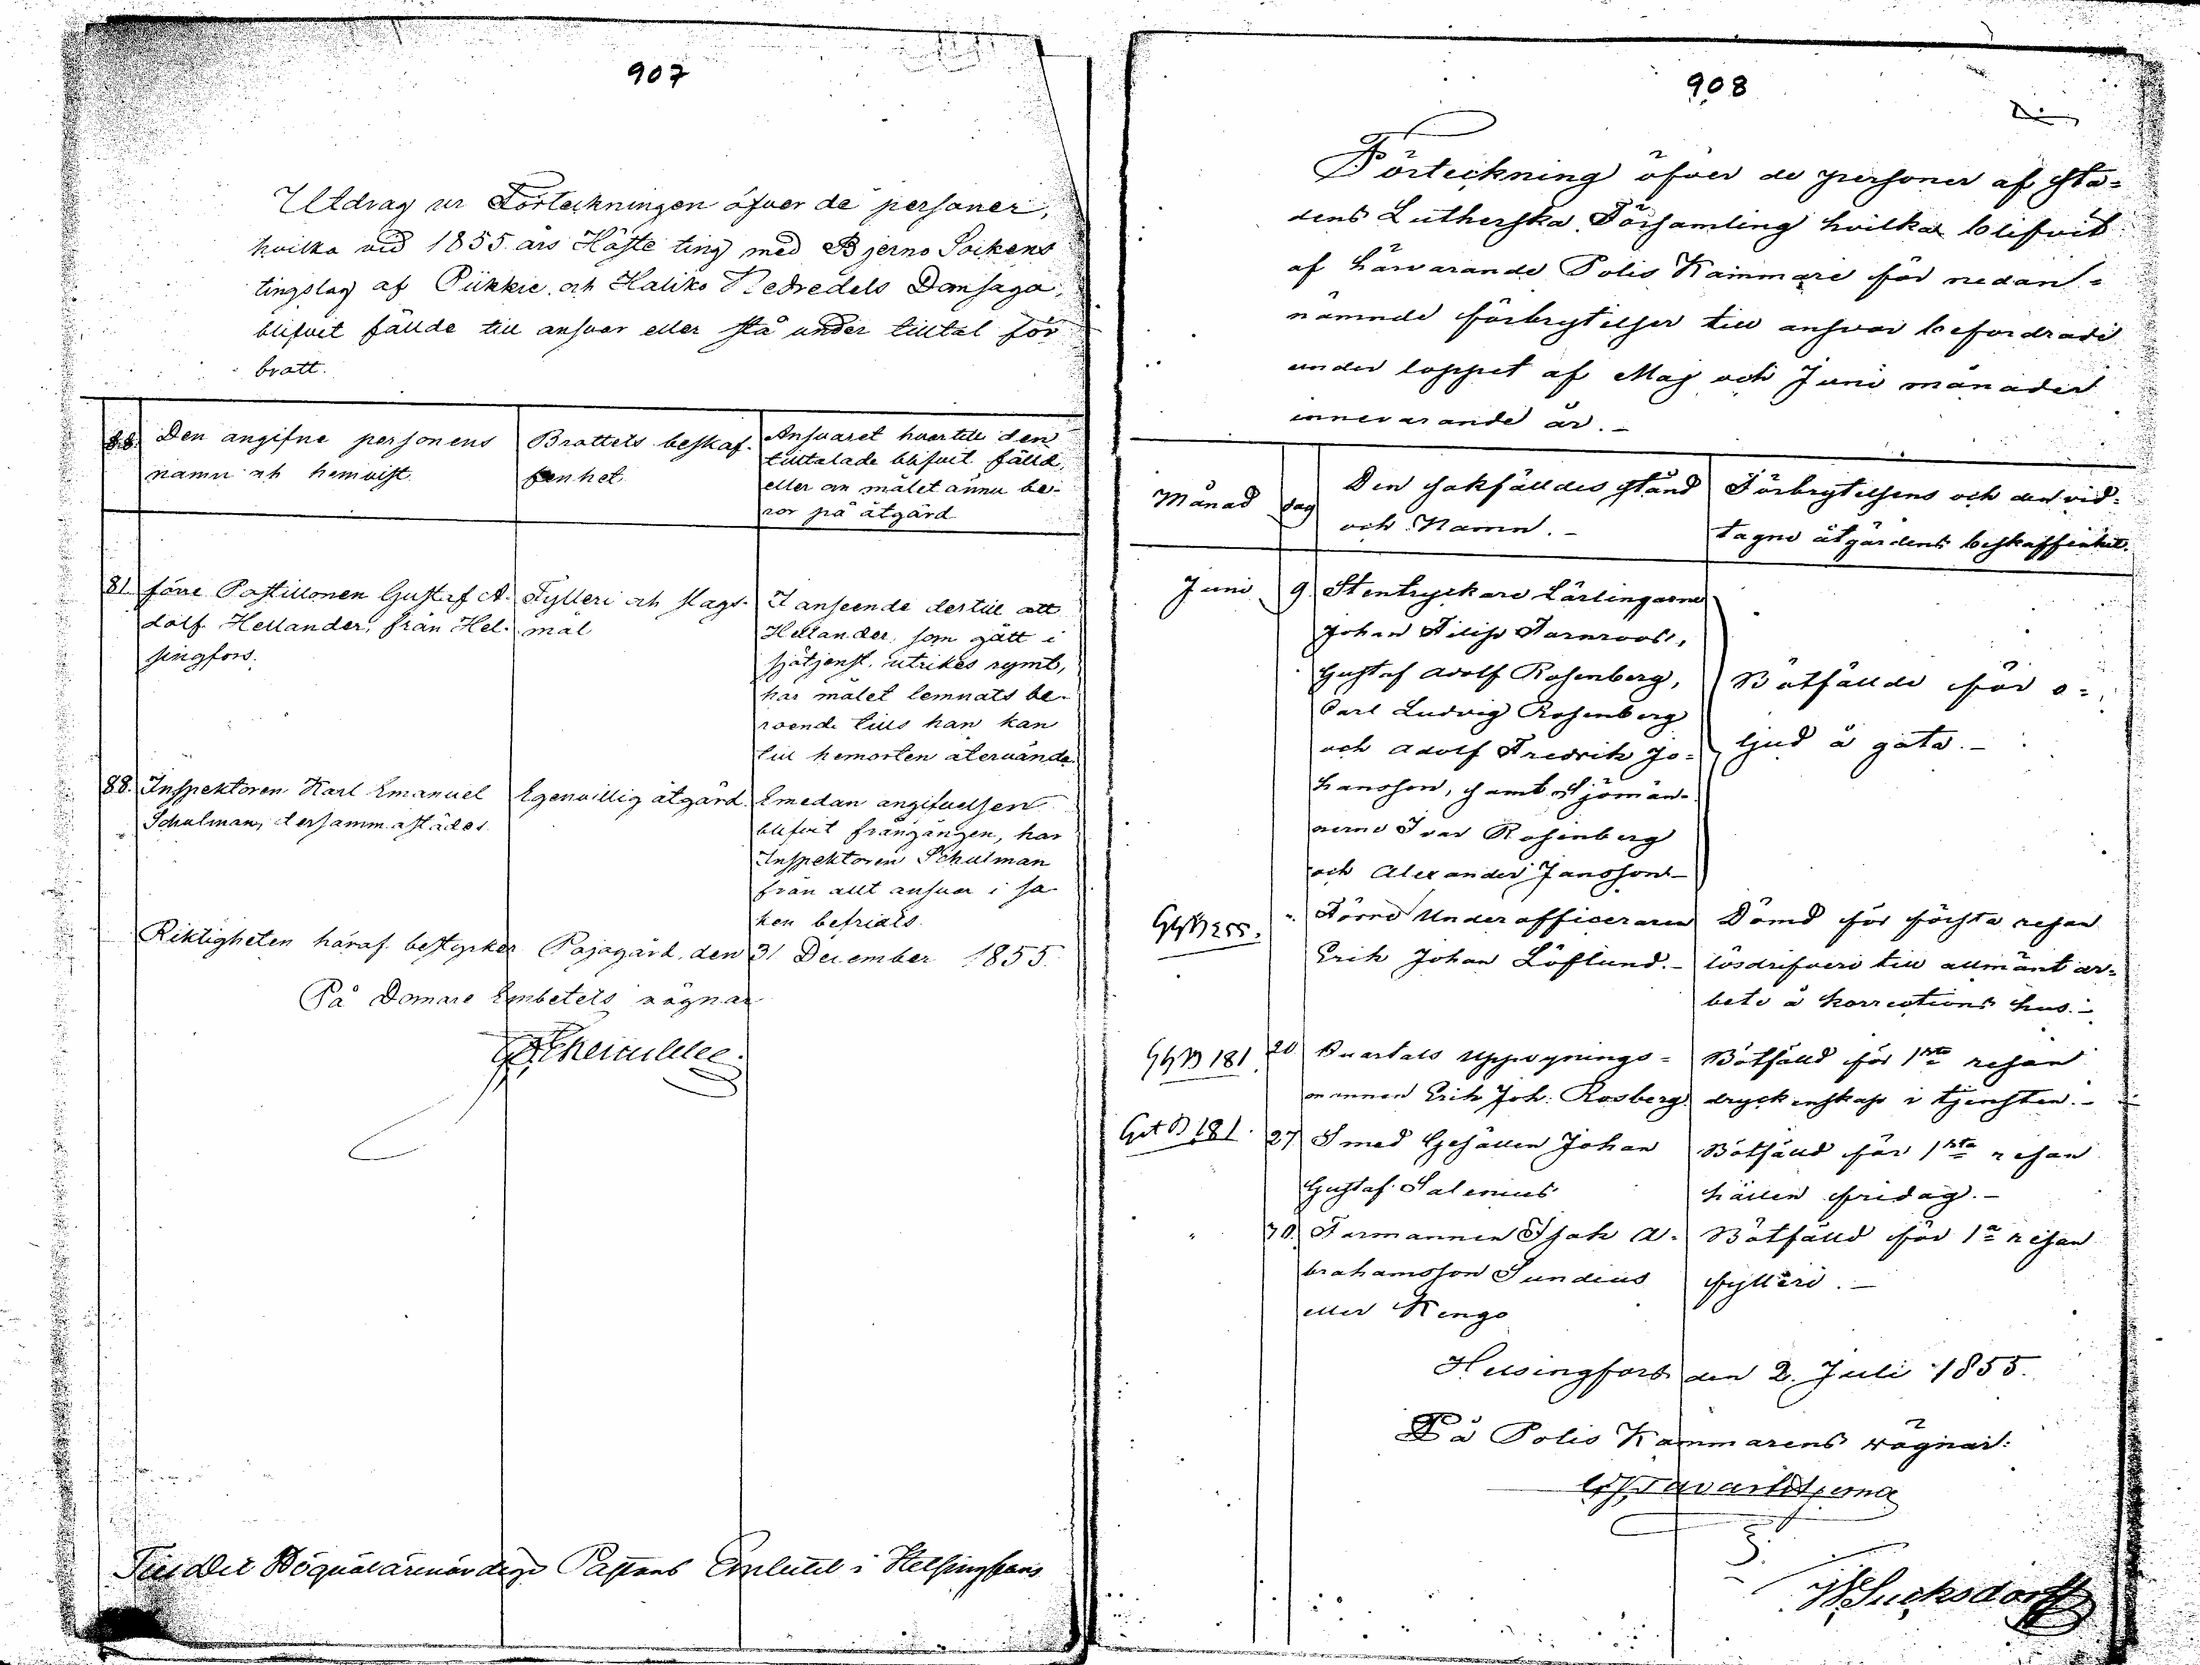 907
Utdrag ur Förteckningen öfver de personer,
hvilka vid 1855 års Höste ting med Bjerno Sockens
tingslag af Piikkie och Haliko Nedredels Domsaga,
blifvit fällde till ansvar eller stå under tilltal för
brott.
88. Den angifne personens
namn och hemvist.
Brottets beskaf-
fenhet.
Ansvaret hvartill den
tilltalade blifvit fälld,
eller om målet ännu be-
ror på åtgärd
81 förre Postillonen Gustaf A-
dolf Hellander, från Hel-
singfors.
Fylleri och slags-
mål
I anseende dertill att
Hellander, som gått i
sjötjenst, utrikes rymt,
har målet lemnats be-
roende tills han kan
till hemorten återvända.
88. Inspektoren Karl Emanuel
Schulman, dersammastädes
Egenvillig åtgärd.
Emedan angifvelsen
blifvit frångången, har
Inspektoren Schulman
från allt ansvar i sa-
ken befriats.
Riktigheten häraf bestyrker Pajagård, den 31 December 1855.
På Domare Embetets vägnar
Till Det Högvälärevördige Pastors Embetet i Helsingfors
908
Förteckning öfver de personer af sta-
dens Lutherska Församling hvilka blifvit
af härvarande Polis Kammare för nedan-
nämnde förbrytelser till ansvar befordrade
under loppet af Maj och Juni månader
innevarande år.-
Månad
dag
Den sakfälldes stånd
och Namn.-
Förbrytelsens och den vid-
tagne åtgärdens beskaffenhet.
Juni 9. Stentryckare Lärlingarne
Johan Filip Tarnroos,
Gustaf Adolf Rosenberg,
Carl Ludvig Rosenberg
och Adolf Fredrik Jo-
hansson, samt Sjömän-
nerne Ivar Rosenberg
och Alexander Jansson-
Bötfällde för o-
ljud å gata.-
" Förre Underofficeraren
Erik Johan Löflund.-
Dömd för första resan
lösdrifveri till allmänt ar-
bete å korrections hus.-
181 20 Kvartals Uppsynings-
mannen Erik Joh: Rosberg
Bötfälld för 1sta resan
dryckenskap i tjensten.-
181. 27 Smed Gesällen Johan
Gustaf Salenius
Bötfälld för 1sta resan
hållen fridag.-
" 30. Formannen Isak A-
brahamsson Sundius
eller Kengo
Bötfälld för 1a resan
fylleri.-
Helsingfors den 2. Juli 1855.
På Polis Kammarens vägnar:
W Sucksdorff